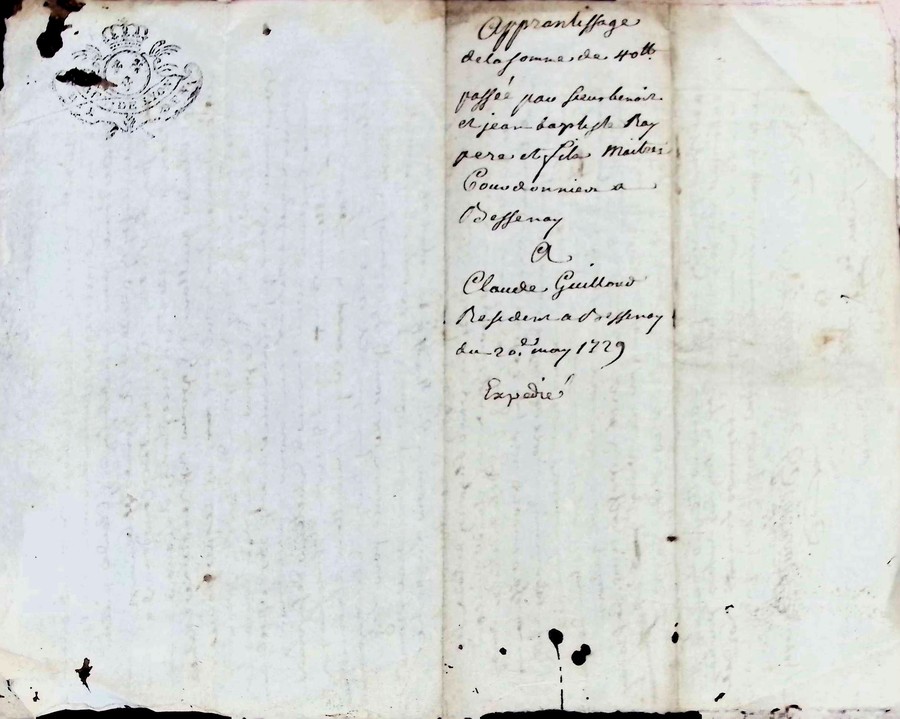 Apprantissage
de la somme de 40ᵗᵗ
passée par sieurs benoit
et jean baptist Ray
pere et fils Maitres
Courdonnier a
Bessenay
A
Claude Guilloud
Resident a Bessenay
du 20.ᵈ may 1729
Expedié